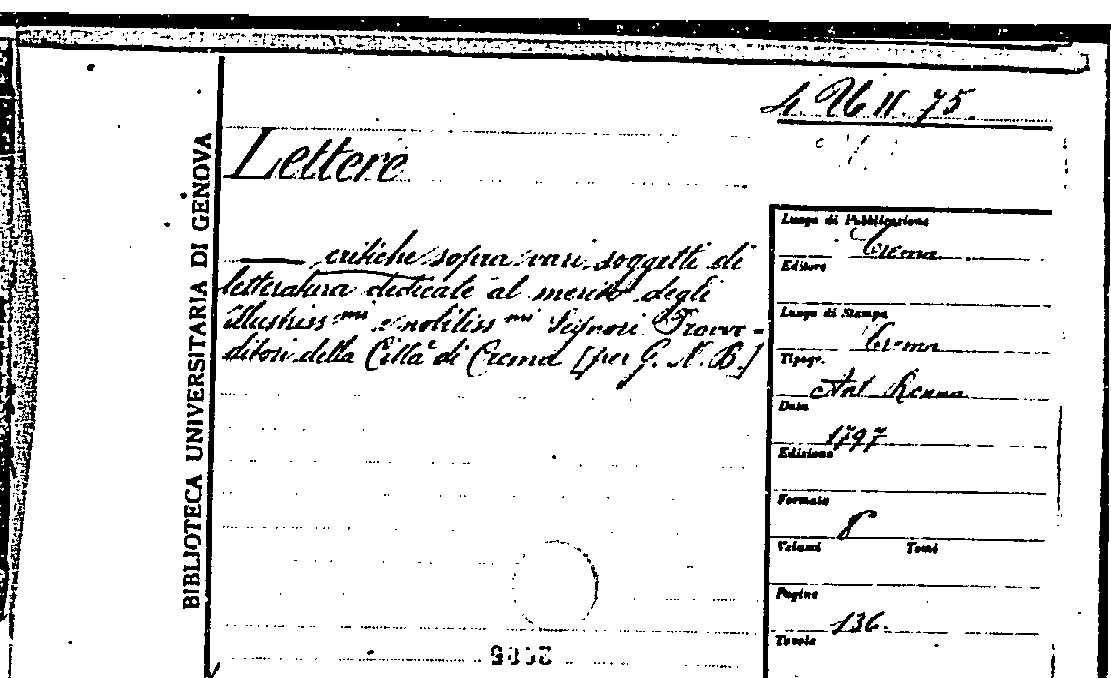 4. U. II. 75.
Lettere
BIBLIOTECA UNIVERSITARIA DI GENOVA
—— critiche sopra vari soggetti di
letteratura dedicate al merito degli
illustriss.mi e nobiliss.mi Signori Provve-
ditori della Città di Crema [per G. N. B.]
Luogo di Pubblicazione
Crema
Editore
Luogo di Stampa
Crema
Tipogr.
Ant. Ronna
Data
1797
Edizione
Formato
8°
Volumi Tomi
Pagine
136.
Tavole